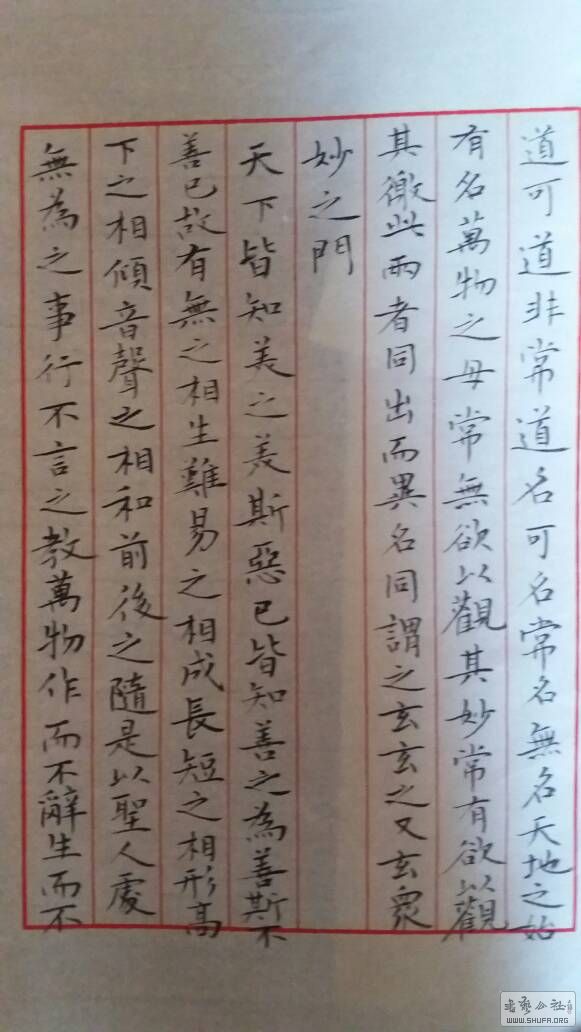 道可道非常道名可名常名無名天地之始
有名萬物之母常無欲以觀其妙常有欲以觀
其徼此兩者同出而異名同謂之玄玄之又玄衆
妙之門
天下皆知美之美斯惡已皆知善之為善斯不
善已故有無之相生難易之相成長短之相形高
下之相傾音聲之相和前後之隨是以聖人處
無為之事行不言之教萬物作而不辭生而不
書藝公社
WWW.SHUFA.ORG